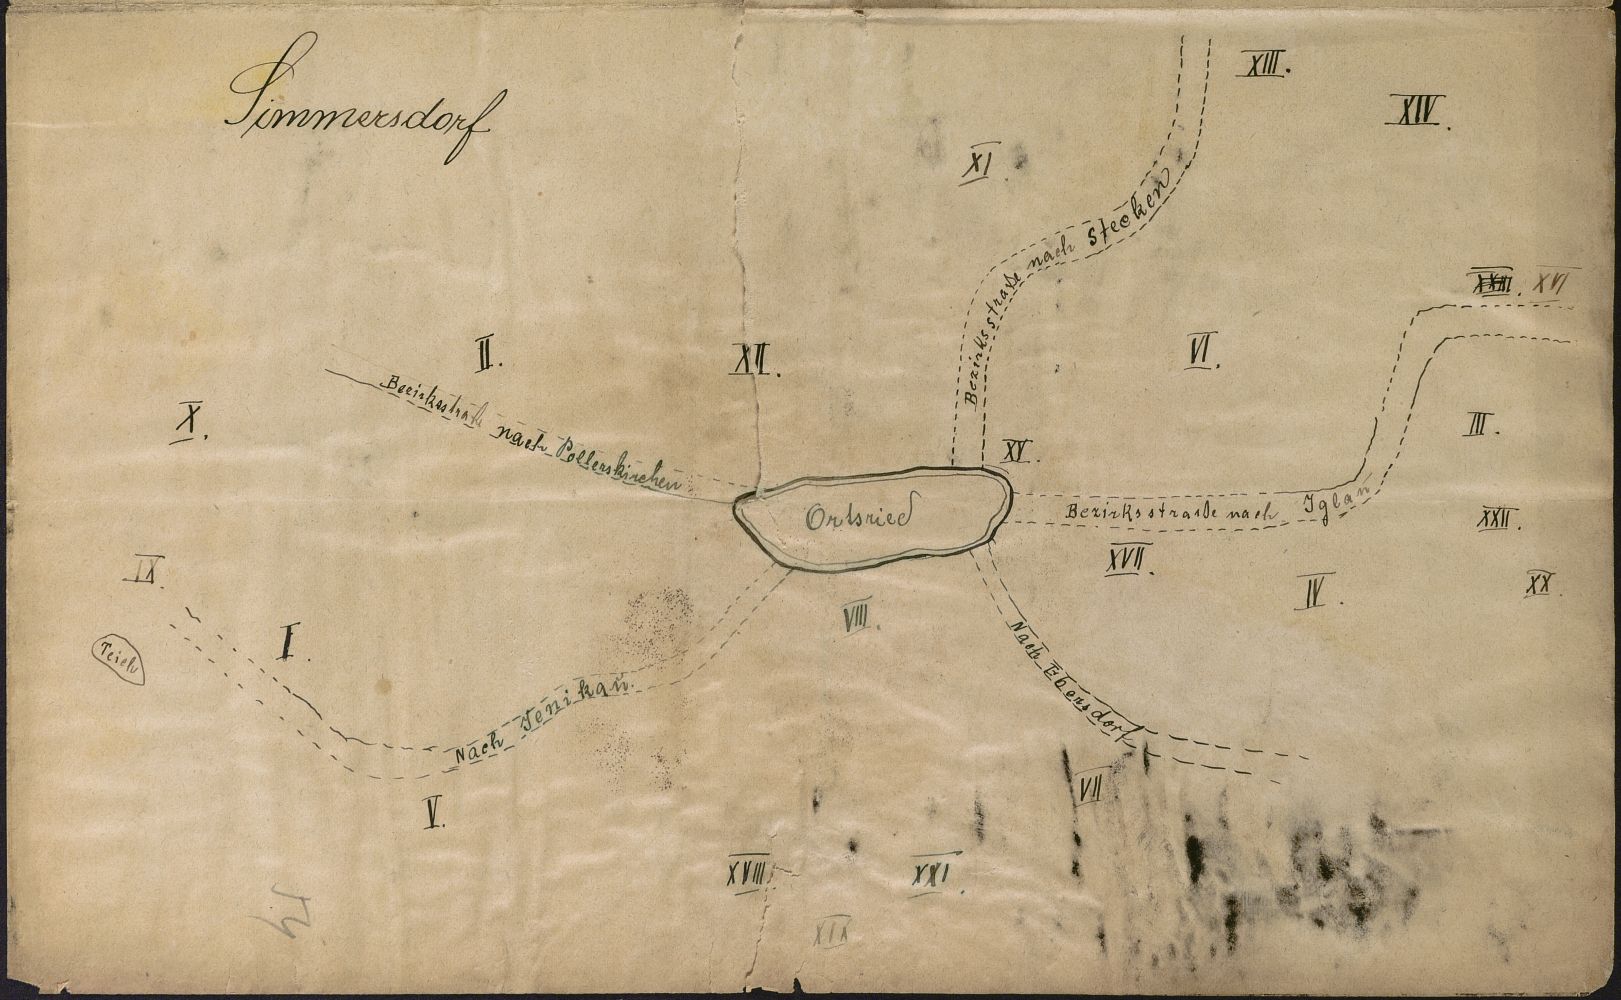 Simmersdorf
XIII.
XIV.
XI
Bezirksstraße nach Stecken
XXIII. XVI
II.
XII.
VI.
X.
Bezirksstraße nach Pollerskirchen
III.
XV.
Ortsried
Bezirksstraße nach Iglau
XXII.
XVII.
IX.
IV.
XX.
VIII.
I.
Teich
Nach Ebersdorf
Nach Jenikau.
VII
V.
XVIII
XXI.
XIX